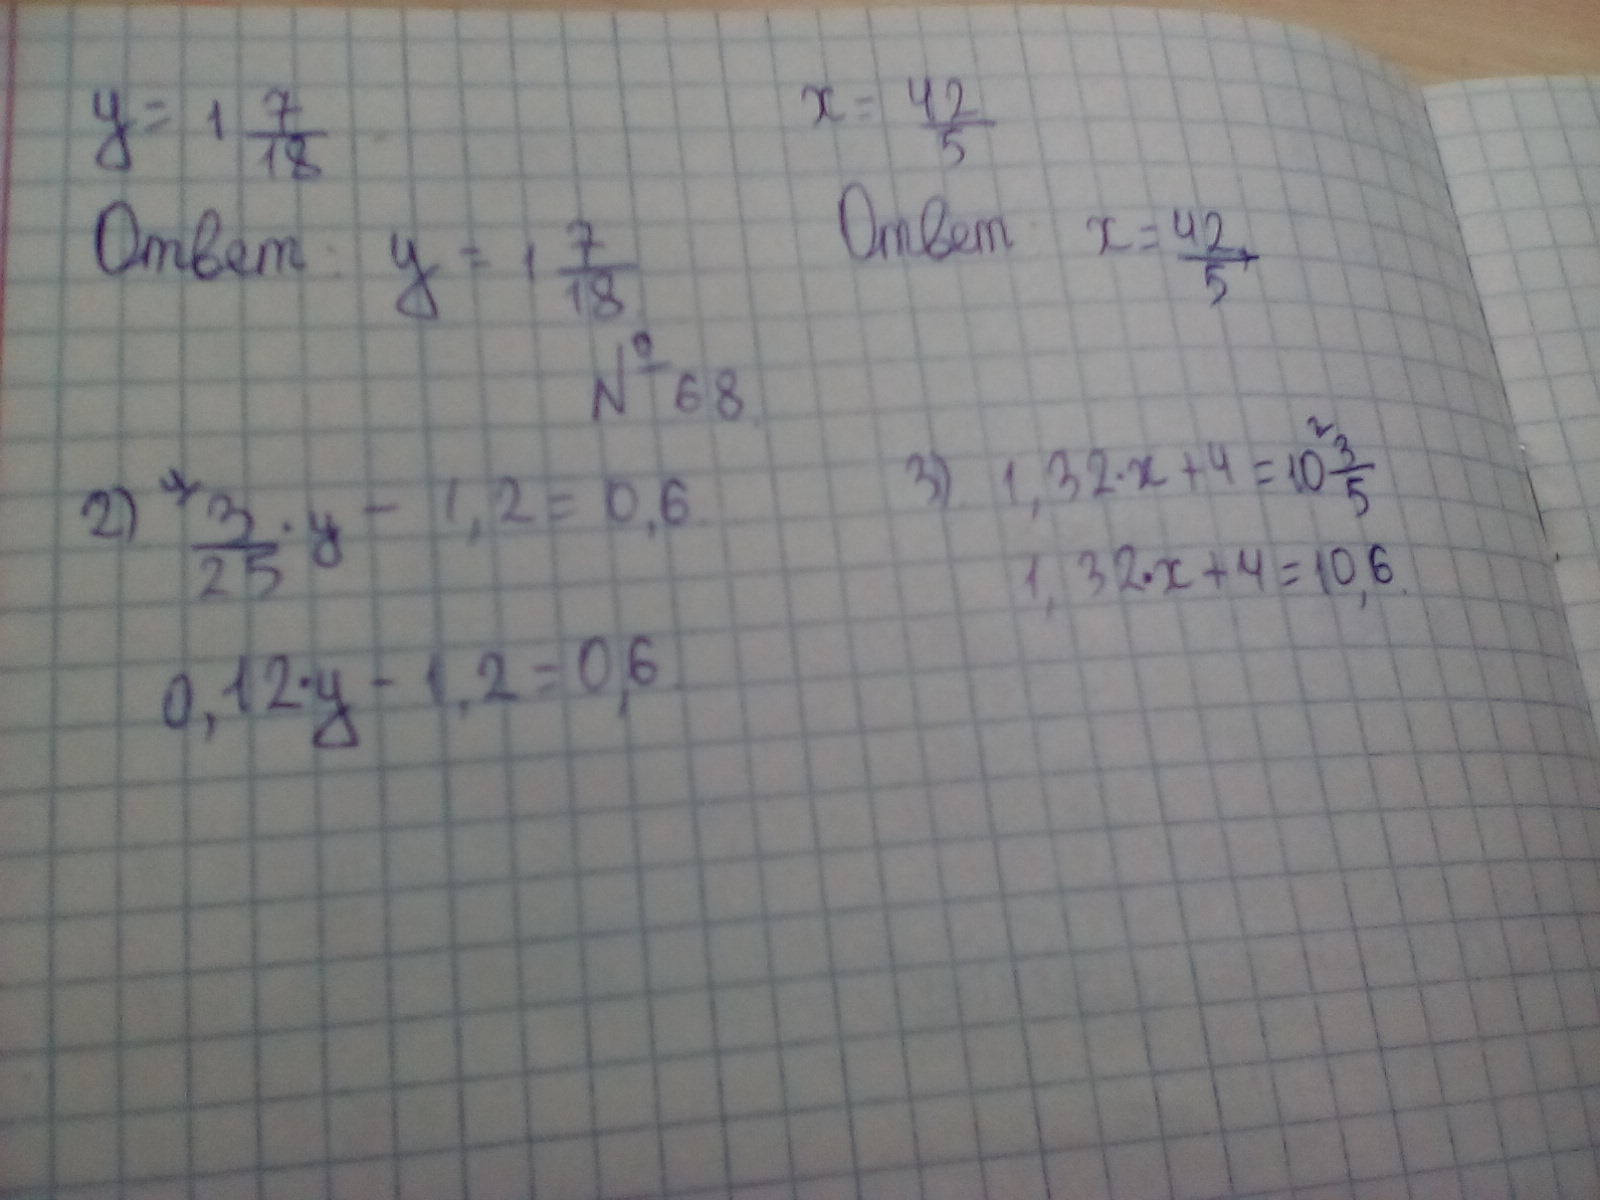 y = 1 7/18
x = 42/5
Ответ: y = 1 7/18
Ответ x = 42/5
№ 68
2) 4 3/25 · y - 1,2 = 0,6
3) 1,32 · x + 4 = 10 2 3/5
0,12 · y - 1,2 = 0,6
1,32 · x + 4 = 10,6